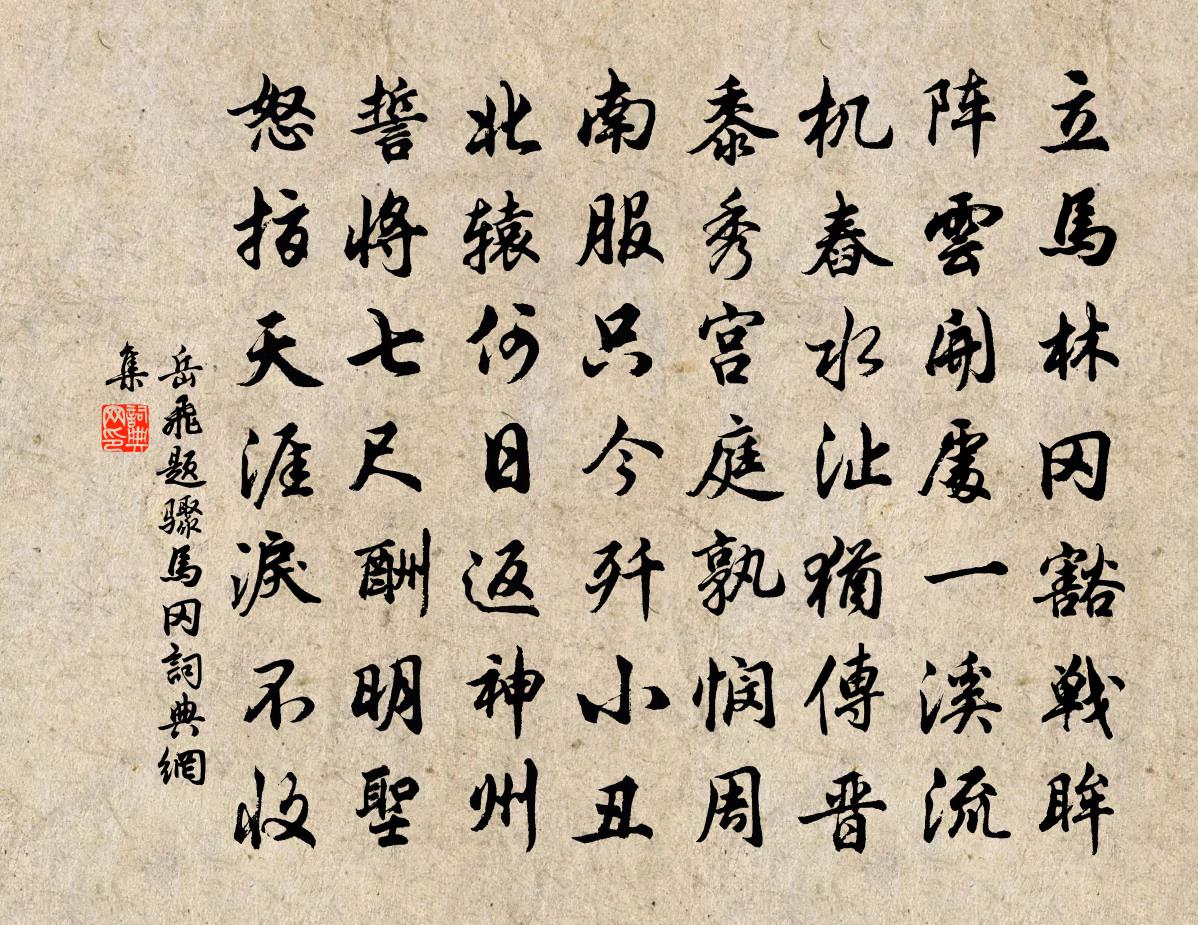 立馬林冈豁戦眸
阵雲開處一溪流
机舂水沚猶傳晋
黍秀宫庭孰悯周
南服只今歼小丑
北辕何日返神州
誓將七尺酬明聖
怒指天涯淚不收
岳飛题骤馬冈詞典網
集
詞典
网印